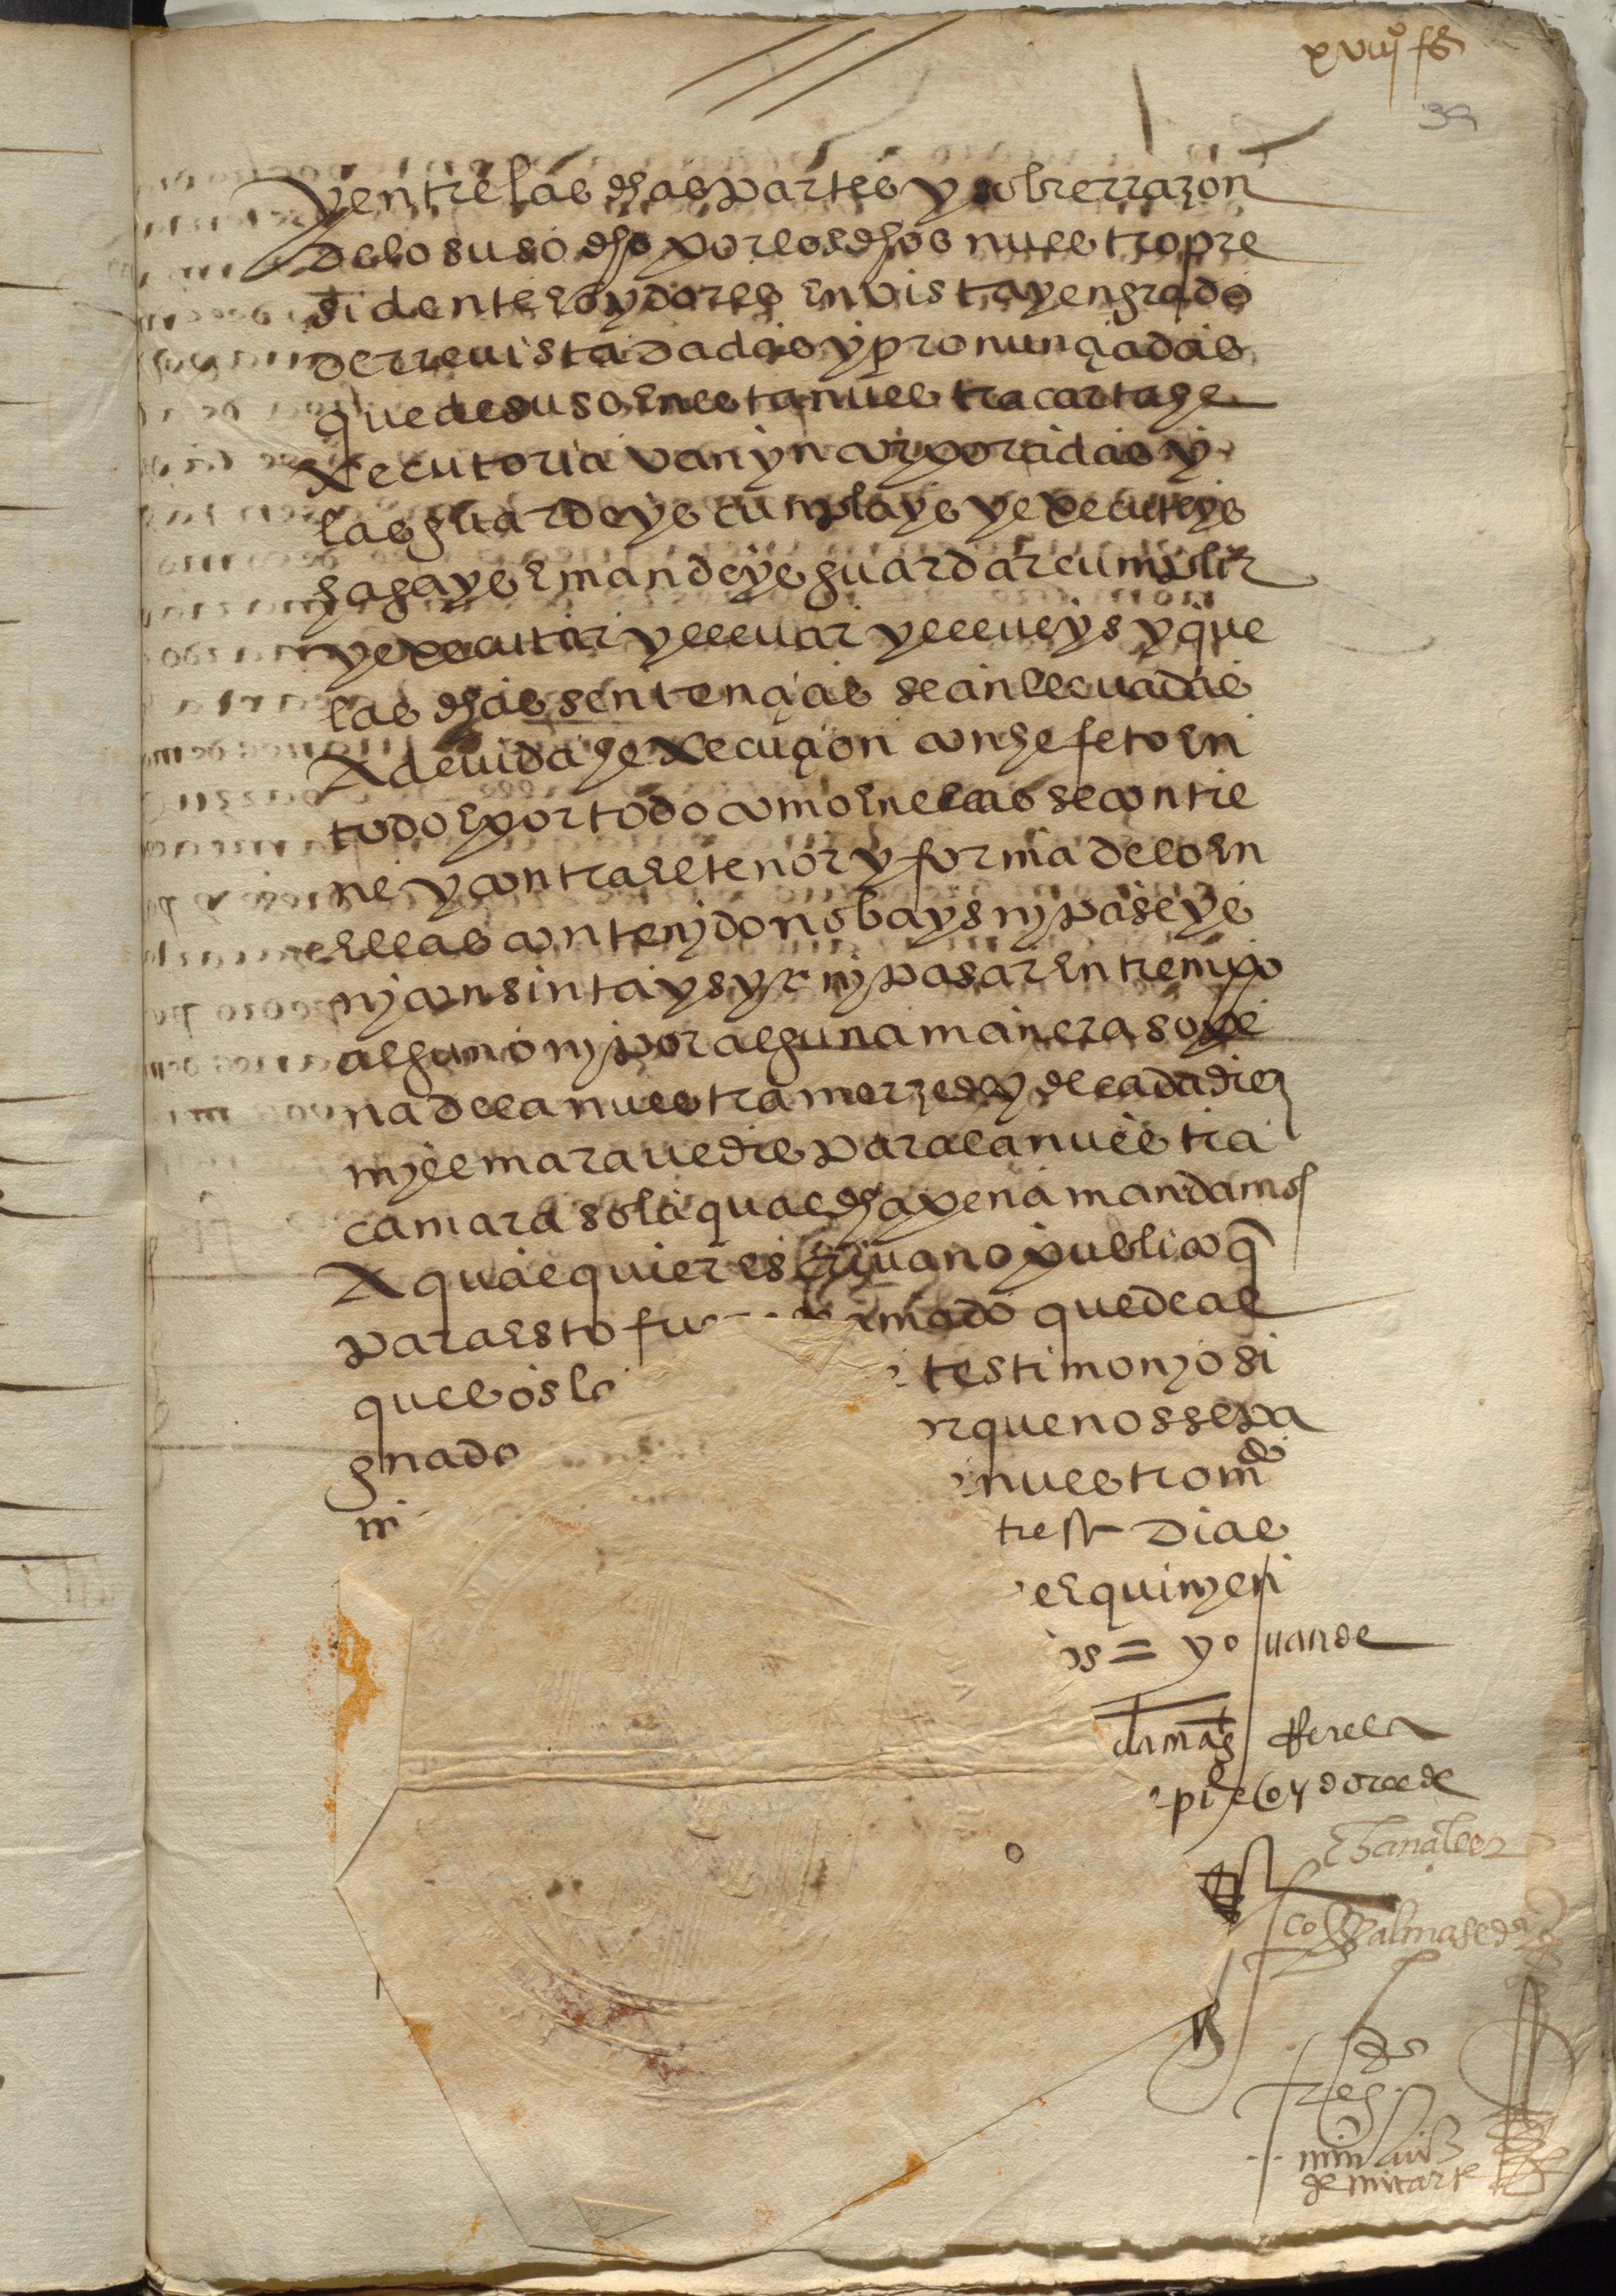 xviijº fs
39
y entre las dhas partes y sobre rrazon
de lo suso dho por los dhos nuestro pre
sidente e oydores en vista y en grado
de rrevista dadas y pronunçiadas
que de suso en esta nuestra carta he
xecutoria van yncorporadas y
las guardeys cumplays y executeys
hagays e mandeys guardar cumplir
y executar y lleuar y lleueys y que
las dhas sentençias sean lleuadas
A deuida hexecuçion con hefeto en
todo e por todo como en ellas se contie
ne y contra el tenor y forma de lo en
ellas contenjdo no bays nj paseys
nj consintays yr nj pasar en tiempo
alguno nj por alguna manera so pe
na de la nuestra merzed y de cada diez
mjll marauedis para la nuestra
camara so la qual dha pena mandamos
A qualquier escriuano publico q
para esto fu mado que de al
que os la testimonjo si
gnado rque nos sepa
m nuestro mdo
tres dias
e quinjen
os = yo juan de
camas
oydores de
Chançiller
Valmaseda
Reg
min